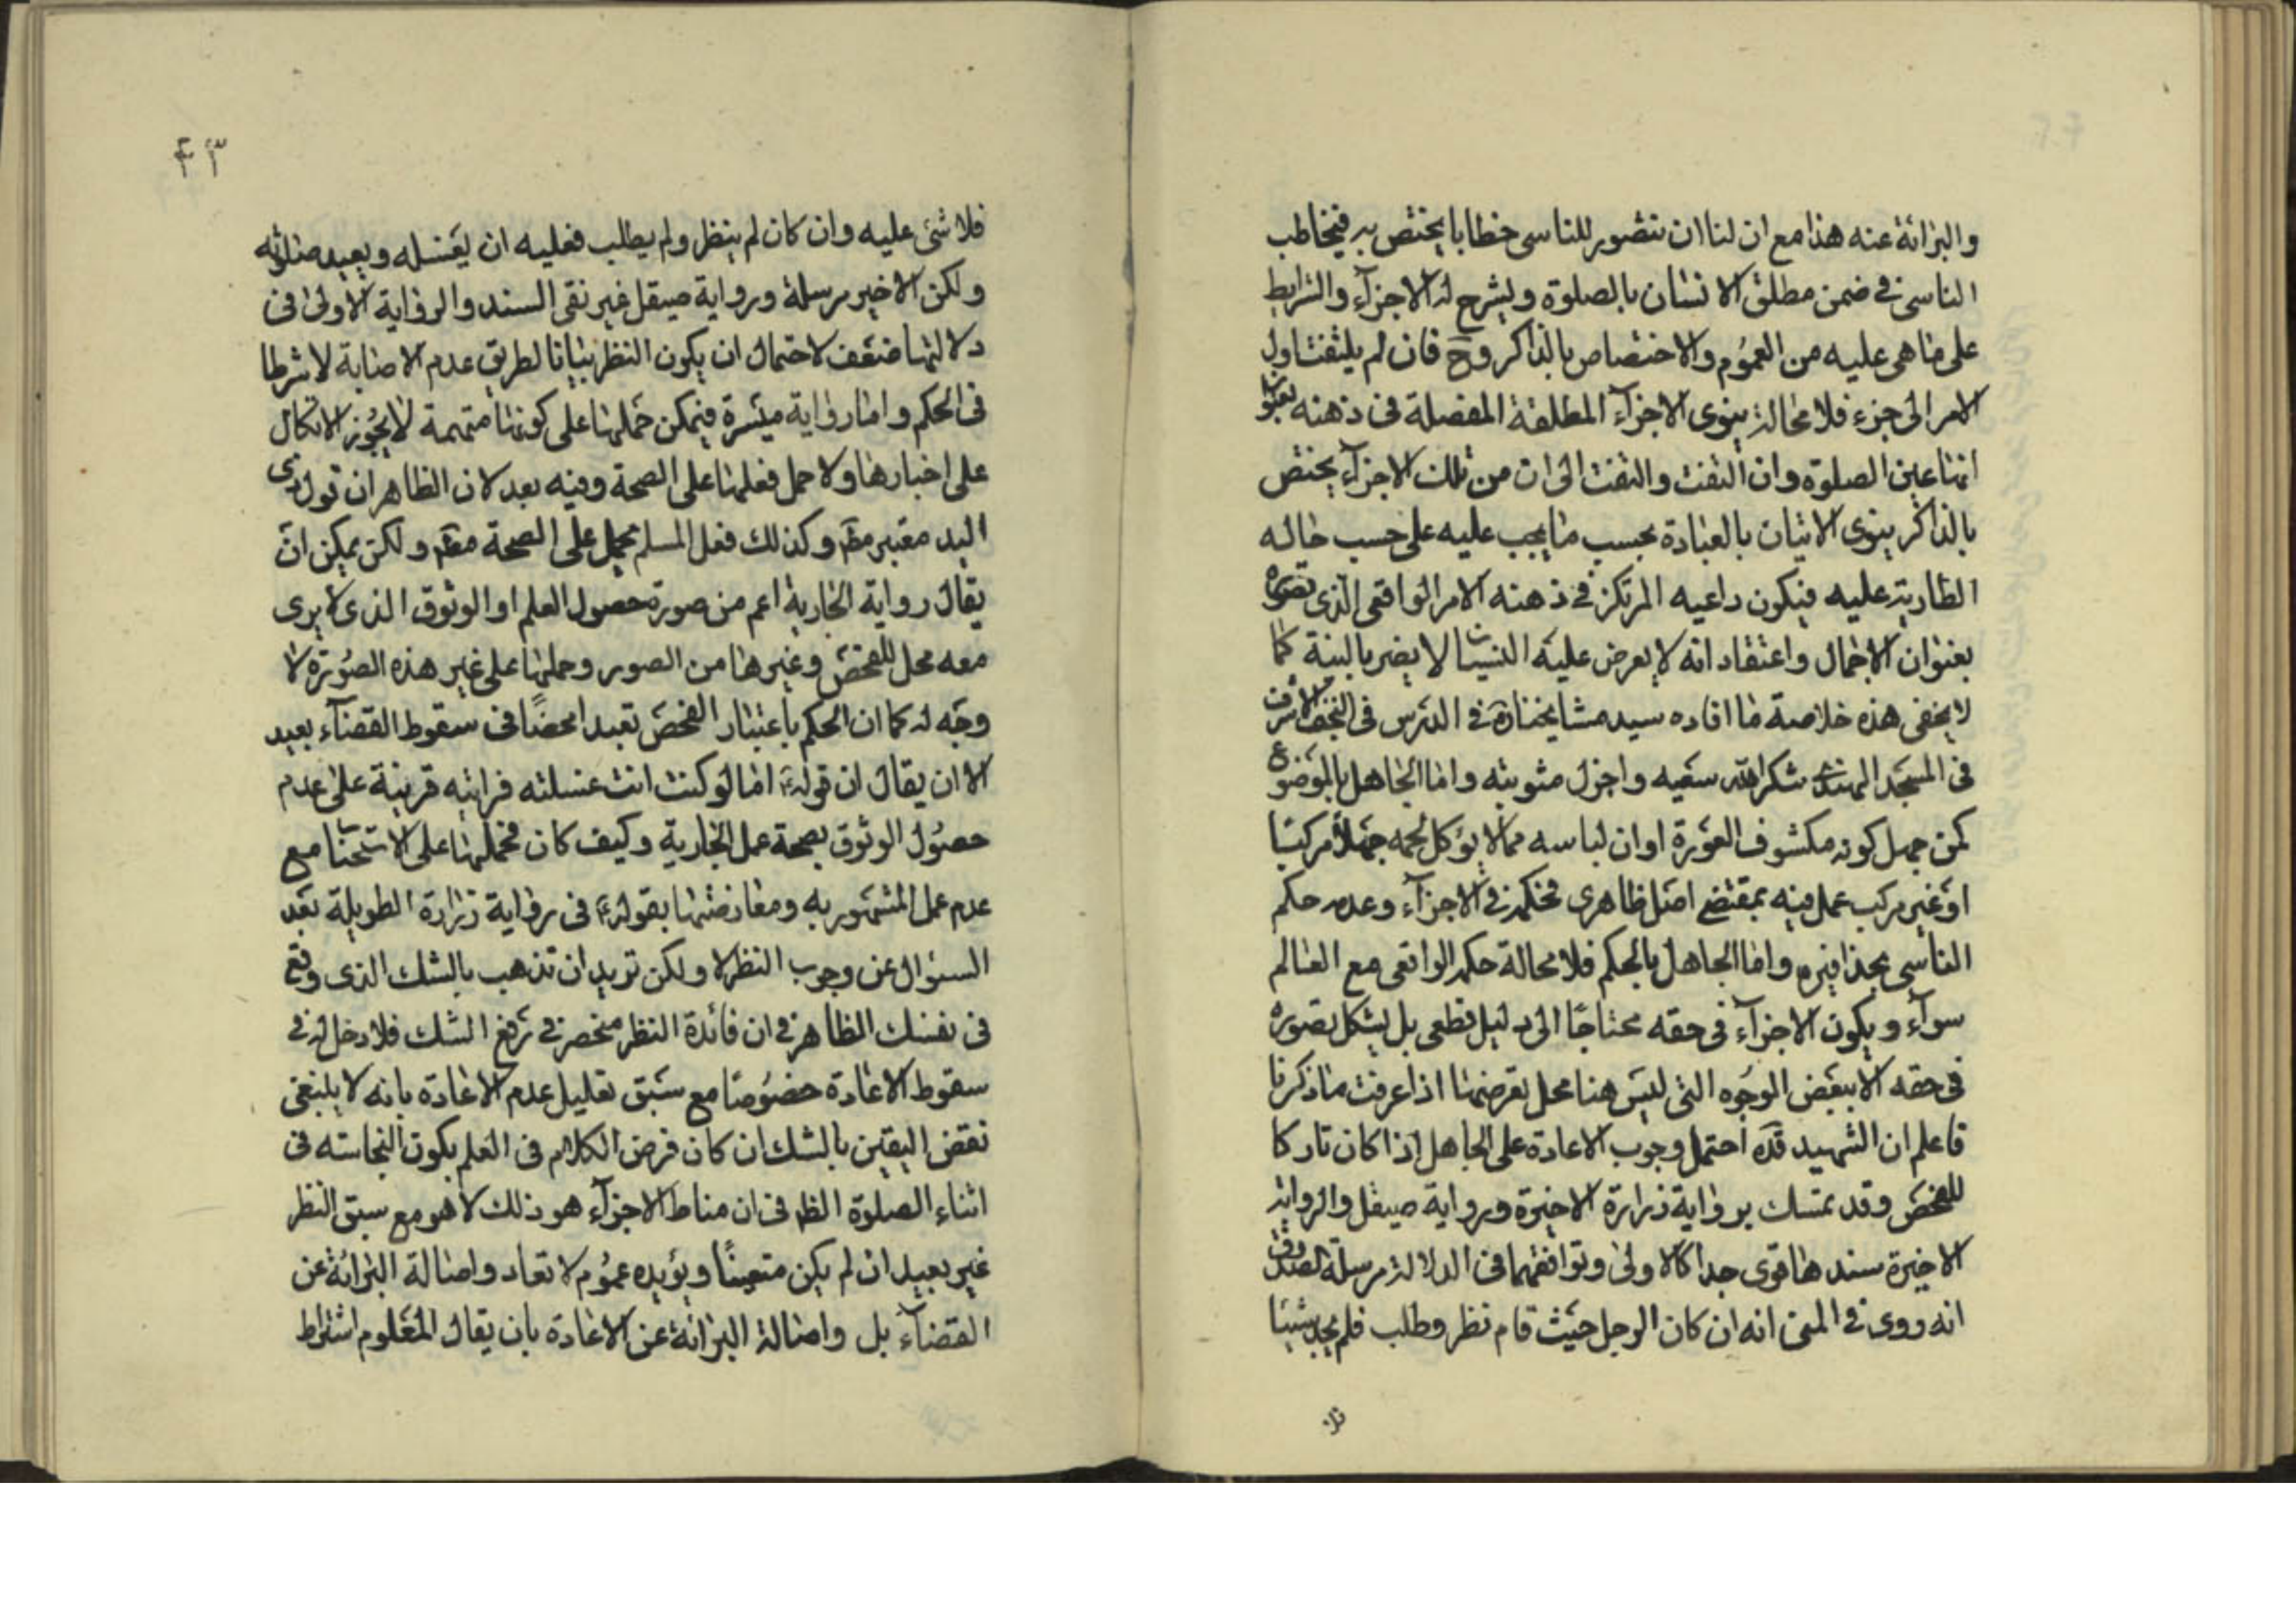 والبرائة عنه هذا مع ان لنا ان نتصور للناسى خطابا يختص به فيخاطب
الناسى فى ضمن مطلق الانسان بالصلوة ويشرح له الاجزآء والشرايط
على ما هى عليه من العموم والاختصاص بالذاكر وح فان لم يلتفت اول
الامر الى جزء فلا محالة ينوى الاجزآء المطلقة المفصلة فى ذهنه بعنوان
انها عين الصلوة وان التفت والتفت الى ان من تلك الاجزآء يختص
بالذاكر ينوى الاتيان بالعبادة بحسب ما يجب عليه على حسب حاله
الطارية عليه فيكون داعيه المرتكز فى ذهنه الامر الواقعى الذى تصوره
بعنوان الاجمال واعتقاد انه لا يعرض عليه النسيان لا يضر بالنية كما
لا يخفى هذه خلاصة ما افاده سيد مشايخنا فى الدرس فى النجف الاشرف
فى المسجد الهندى شكر الله سعيه واجزل مثوبته واما الجاهل بالموضوع
كمن جهل كونه مكشوف العورة او ان لباسه مما لا يؤكل لحمه جهلا مركبا
او غير مركب عمل فيه بمقتضى اصل ظاهرى فحكمه فى الاجزآء وعدمه حكم
الناسى بحذافيره واما الجاهل بالحكم فلا محالة حكمه الواقعى مع العالم
سوآء ويكون الاجزآء فى حقه محتاجا الى دليل قطعى بل يشكل تصوره
فى حقه الا ببعض الوجوه التى ليس هنا محل تعرضها اذا عرفت ما ذكرنا
فاعلم ان الشهيد قده احتمل وجوب الاعادة على الجاهل اذا كان تاركا
للفحص وقد تمسك برواية زرارة الاخيرة ورواية صيقل والرواية
الاخيرة سندها قوى جدا كالاولى وتوافقهما فى الدلالة مرسلة الصدوق
انه روى فى المنى انه ان كان الرجل حيث قام نظر وطلب فلم يجد شيئا
فلا
۴۳
فلا شئ عليه وان كان لم ينظر ولم يطلب فعليه ان يغسله ويعيد صلوته
ولكن الاخير مرسلة ورواية صيقل غير نقى السند والرواية الاولى فى
دلالتها ضعف لاحتمال ان يكون النظر بيانا لطريق عدم الاصابة لا شرطا
فى الحكم واما رواية ميسرة فيمكن حملها على كونها متهمة لا يجوز الاتكال
على اخبارها ولا حمل فعلها على الصحة وفيه بعد لان الظاهر ان قول ذى
اليد معتبر مطم وكذلك فعل المسلم يحمل على الصحة مطم ولكن يمكن ان
يقال رواية الجارية اعم من صورة حصول العلم او الوثوق الذى لا يرى
معه محل للفحص وغيرها من الصور وحملها على غير هذه الصورة لا
وجه له كما ان الحكم باعتبار الفحص تعبدا محضا فى سقوط القضآء بعيد
الا ان يقال ان قوله ع اما لو كنت انت غسلته قرابته قرينة على عدم
حصول الوثوق بصحة عمل الجارية وكيف كان فحملها على الاستحباب مع
عدم عمل المشهور به ومعارضتها بقوله ع فى رواية زرارة الطويلة بعد
السؤال عن وجوب النظر لا ولكن تريد ان تذهب بالشك الذى وقع
فى نفسك الظاهر فى ان فائدة النظر منحصر فى رفع الشك فلا دخل له فى
سقوط الاعادة خصوصا مع سبق تعليل عدم الاعادة بانه لا ينبغى
نقض اليقين بالشك ان كان فرض الكلام فى العلم بكون النجاسته فى
اثناء الصلوة الظم فى ان مناط الاجزآء هو ذلك لا هو مع سبق النظر
غير بعيد ان لم يكن متعينا ويؤيده عموم لا تعاد واصالة البرائة عن
القضآء بل واصالة البرائة عن الاعادة بان يقال المعلوم اشتراط